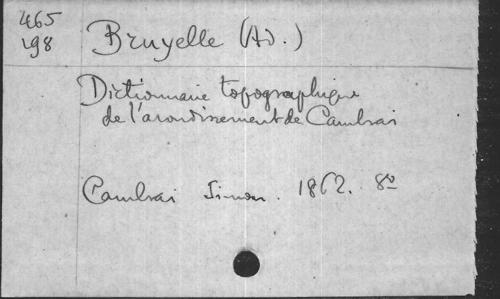 465
198
Bruyelle (Ad.)
Dictionnaire topographique
de l'arrondissement de Cambrai
Cambrai Simon. 1862. 8º